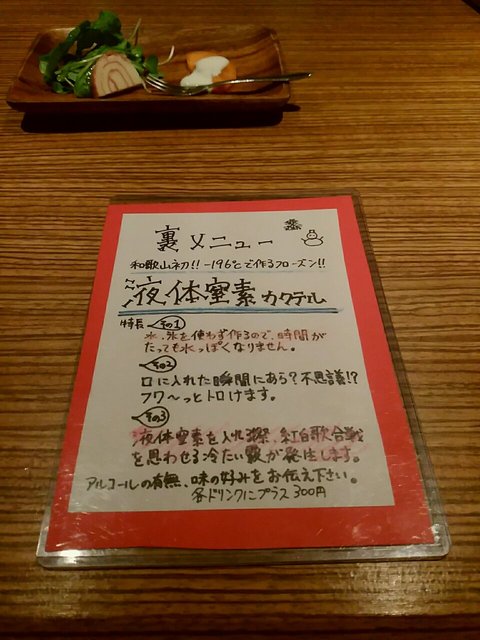 裏メニュー
和歌山初!!-196℃で作るフローズン!!
液体窒素カクテル
特長 その1
水、氷を使わず作るので、時間が
たっても水っぽくなりません。
その2
口に入れた瞬間にあら?不思議!?
フワ〜っとトロけます。
その3
液体窒素を入れる際、紅白歌合戦
を思わせる冷たい霧が発生します。
アルコールの有無、味の好みをお伝え下さい。
各ドリンクにプラス300円